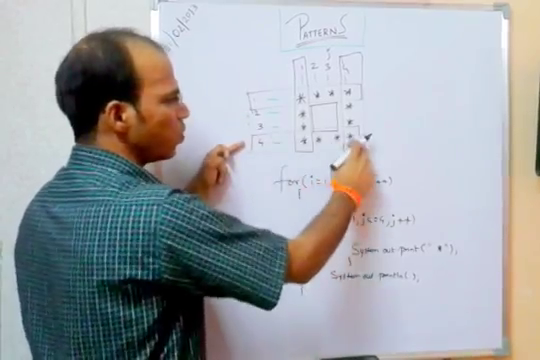 /02/2013
PATTERNS
j
1 2 3 4
1 * * * *
2 * *
3 * *
4 * * * *
for(i=1 ++)
j<=4, j++)
System out.print(" * ");
}
System out println();
}